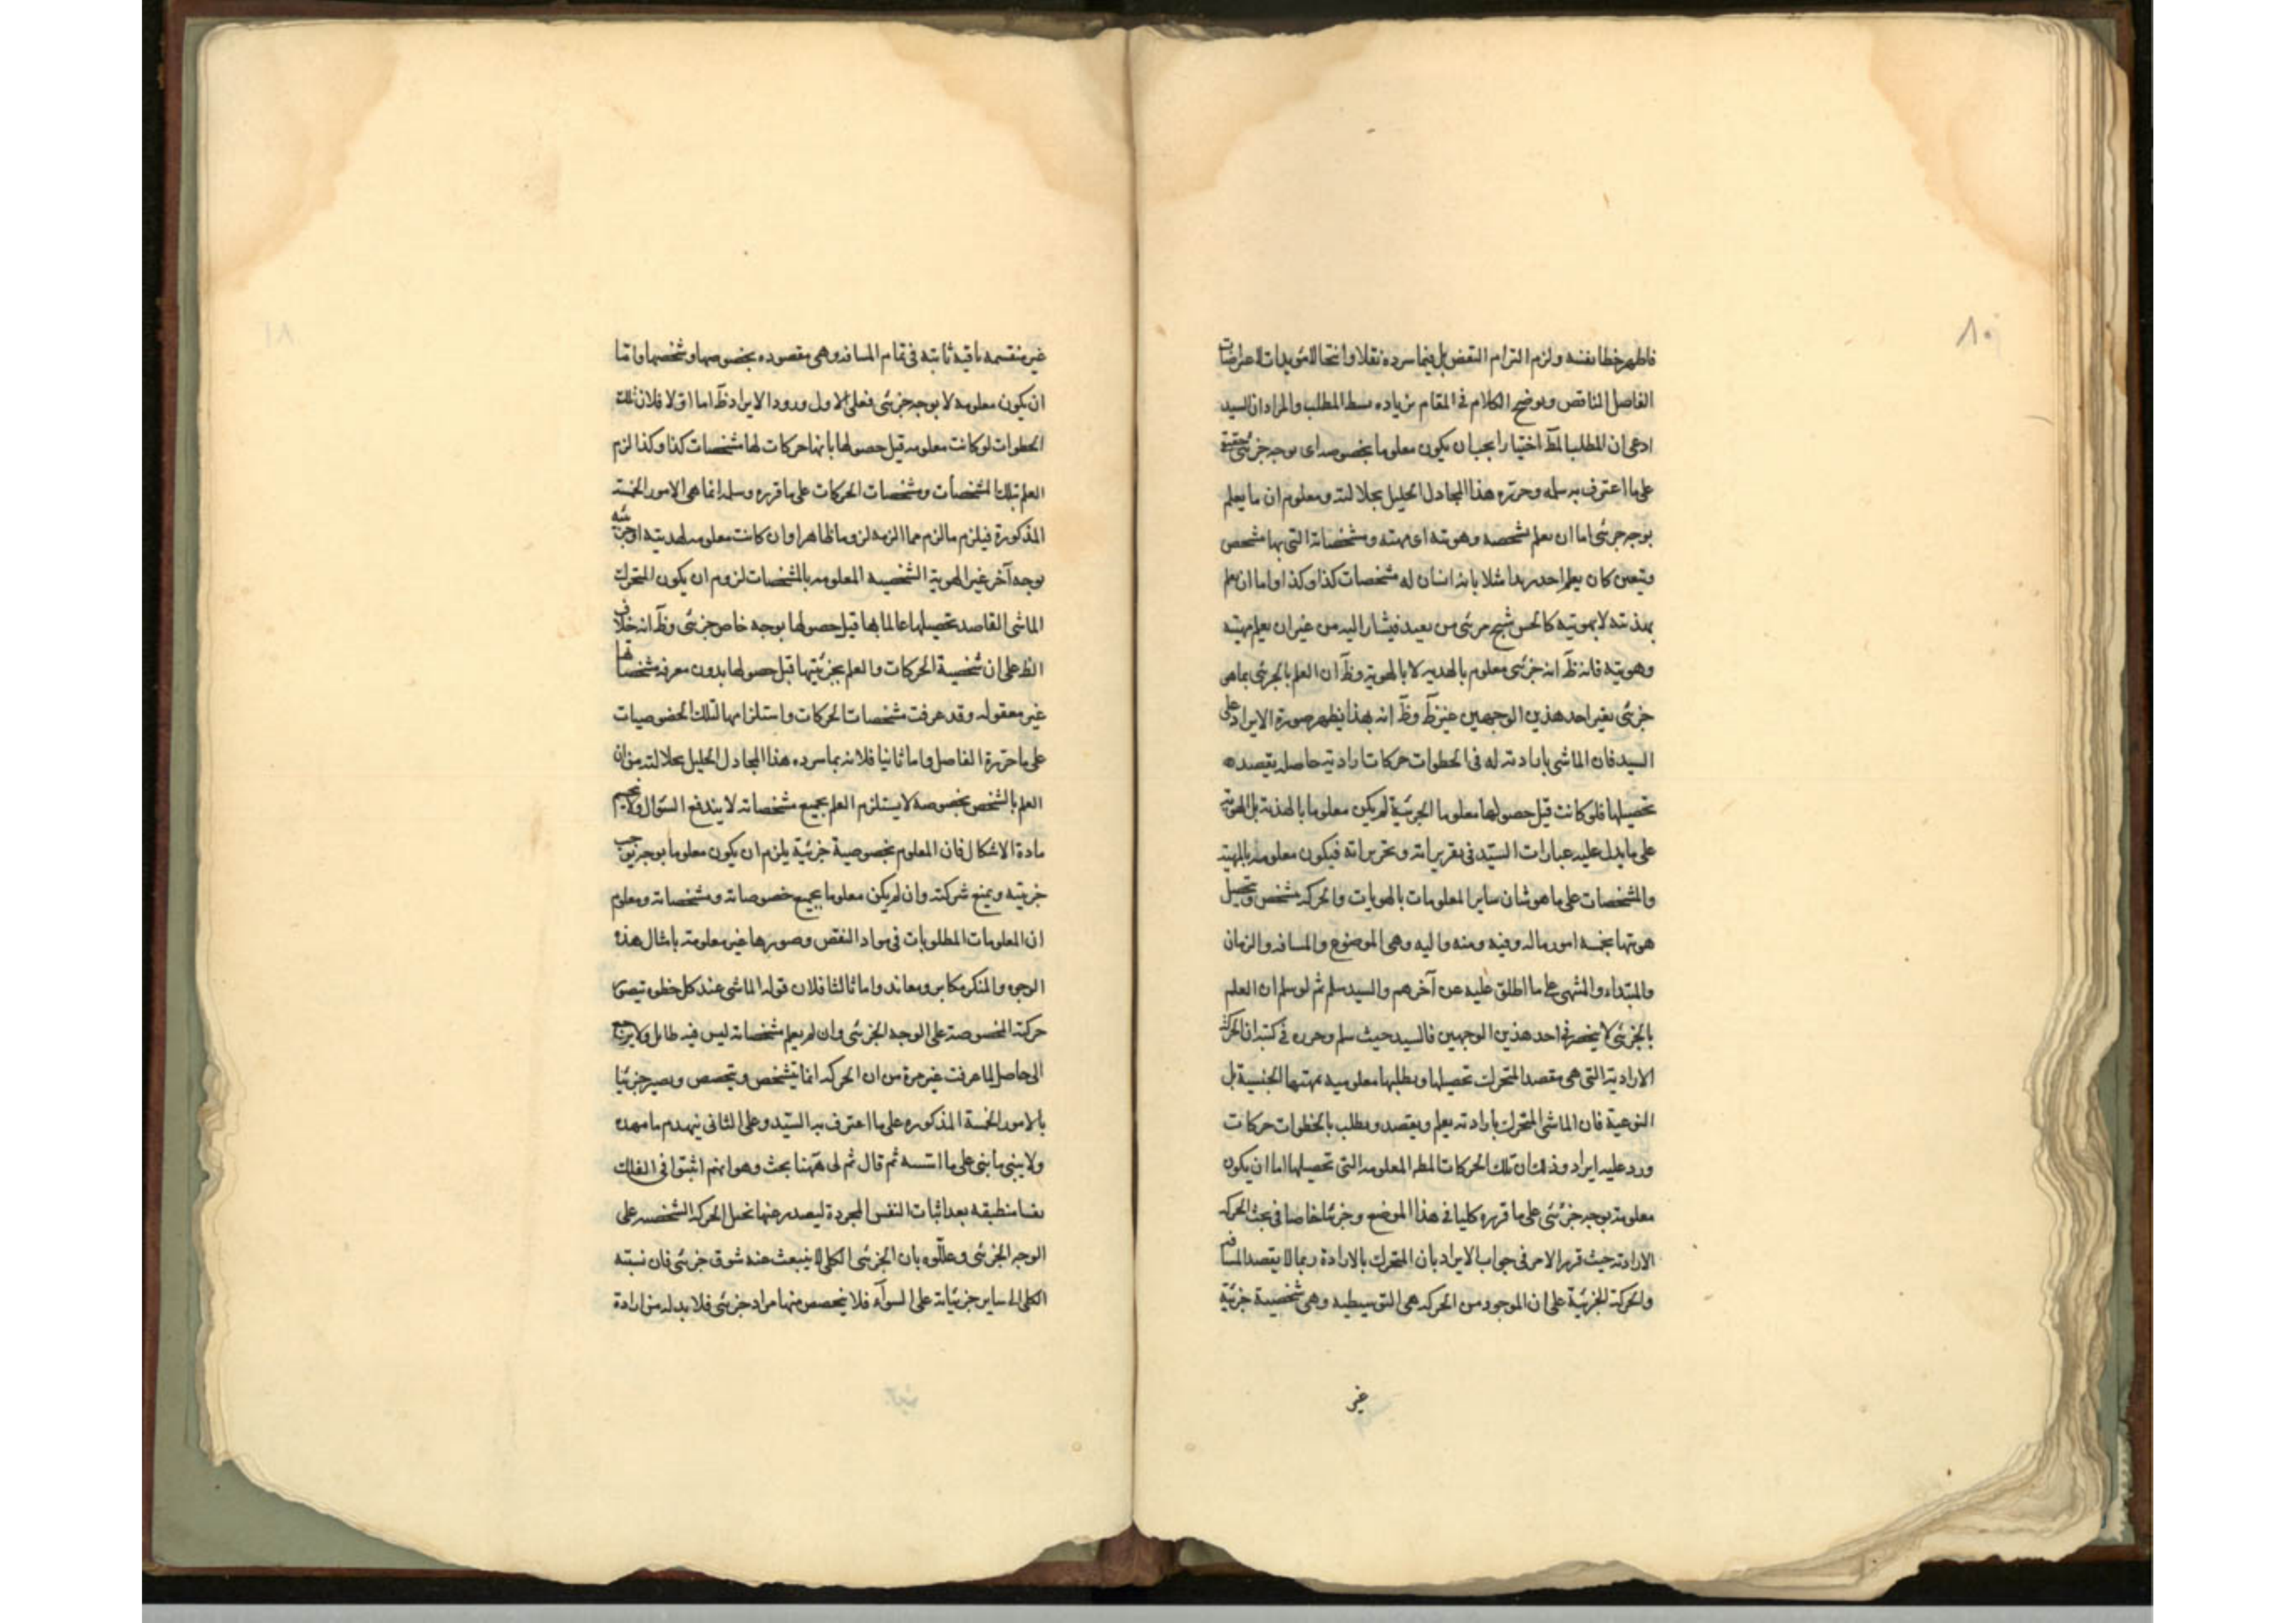 ٨٠
فاظهر خطا نفسه ولزم التزام النقض بل فيما سرده نقلا وانتحالا مؤيدات لاعتراضات
الفاضل المناقض ويوضح الكلام فى المقام زياده بسط المطلب والمراد ان السيد
ادعى ان المطلب المط اختيارا يجب ان يكون معلوما بخصوصه اى بوجه جزئى حقيقى
على ما اعترف به سلمه وحرره هذا المجادل الجليل بجلالته ومعلوم ان ما يعلم
بوجه جزئى اما ان يعلم بشخصه وهويته اى مهيته ومشخصاته التى بها تشخص
وتعين كان يعلم احد زيدا مثلا بانه انسان له مشخصات كذا وكذا واما ان يعلم
بهذيته لا بهويته كالحس شبح مرئى من بعيد فيشار اليه من غير ان يعلم مهيته
وهويته فانه ظ انه جزئى معلوم بالهذيه لا بالهوية وظ ان العلم بالجزئى بما هو
جزئى بغير احد هذين الوجهين غير ظ وظ انه بهذا يظهر صورة الايراد على
السيد فان الماشى بارادته له فى الخطوات حركات ارادية حاصله بقصده
تحصيلها فلو كانت قبل حصولها معلوما الجزئية لم يكن معلوما بالهذية بل بالهوية
على ما يدل عليه عبارات السيد فى تقريراته وتحريراته فيكون معلومه بالمهية
والمشخصات على ما هو شان ساير المعلومات بالهويات والحركه تشخص وتحصيل
هويتها بخمسه امور ما له وفيه ومنه واليه وهى الموضوع والمسافه والزمان
والمبتداء والمنتهى على ما اطلق عليه عن آخرهم والسيد سلم ثم لو سلم ان العلم
بالجزئى لا ينحصر فى احد هذين الوجهين فالسيد حيث سلم وحرره فى كتبه ان الحركة
الارادية التى هى مقصد المتحرك تحصيلها ويطلبها معلوميه بمهيتها الجنسية بل
النوعية فان الماشى المتحرك بارادته يعلم ويقصد ويطلب بالخطوات حركات
ورد عليه ايراد وذلك ان تلك الحركات المطه المعلومه التى تحصيلها اما ان يكون
معلومة بوجه جزئى على ما قرره كليا فى هذا الموضع وجزئيا خاصا فى بحث الحركه
الارادية حيث قرر الامر فى جواب الايراد بان المتحرك بالارادة ربما لا يقصد المسافه
والحركة الجزئية على ان الموجود من الحركه هى التوسطيه وهى شخصية جزئية
غير
غير منقسمه باقيه ثابته فى تمام المسافه وهى مقصوده بخصوصها وشخصها واما
ان يكون معلومه لا بوجه جزئى فعلى الاول ورود الايراد ظ اما اولا فلان تلك
الخطوات لو كانت معلومه قبل حصولها بانها حركات لها مشخصات كذا وكذا لزم
العلم بتلك المشخصات ومشخصات الحركات على ما قرره وسلمه انما هى الامور الخمسة
المذكورة فيلزم ما لزم مما الزمه لزوما ظاهرا وان كانت معلومه لهذيته او جزئيته
بوجه آخر غير الهوية الشخصيه المعلومه بالمشخصات لزوم ان يكون المتحرك
الماشى القاصد تحصيلها عالما بها قبل حصولها بوجه خاص جزئى وظ انه خلاف
الظ على ان شخصية الحركات والعلم بجزئيتها قبل حصولها بدون معرفه مشخصاتها
غير معقوله وقد عرفت مشخصات الحركات واستلزامها لتلك الخصوصيات
على ما حرره الفاضل واما ثانيا فلانه بما سرده هذا المجادل الجليل بجلالته من ان
العلم بالشخص بخصوصه لا يستلزم العلم بجميع مشخصاته لا يندفع السؤال ولا ينحسم
مادة الاشكال فان المعلوم بخصوصية جزئية يلزم ان يكون معلوما بوجه يوجب
جزئيته ويمنع شركته وان لم يكن معلوما بجميع خصوصاته ومشخصاته ومعلوم
ان المعلومات المطلوبات فى مواد النقض وصورها غير معلومة بامثال هذه
الوجوه والمنكر مكابر ومعاند واما ثالثا فلان قوله الماشى عند كل خطوه يتصور
حركته المخصوصة على الوجه الجزئى وان لم يعلم مشخصاته ليس فيه طايل ولا يرجع
الى حاصل لما عرفت غير مرة من ان الحركه انما يتشخص ويتخصص ويصير جزئيا
بالامور الخمسة المذكوره على ما اعترف به السيد وعلى الثانى ينهدم ما مهده
ولا يبنى ما بنى على ما اسسه ثم قال ثم لى ههنا بحث وهو انهم اثبتوا فى الفلك
نفسا منطبقه بعد اثبات النفس المجردة ليصدر عنها تخيل الحركه الشخصيه على
الوجه الجزئى وعللوه بان الجزئى الكلى لا ينبعث عنه شوق جزئى فان نسبته
الكلى الى ساير جزئياته على السوآء فلا يتخصص منها مراد جزئى فلا بد له من ارادة